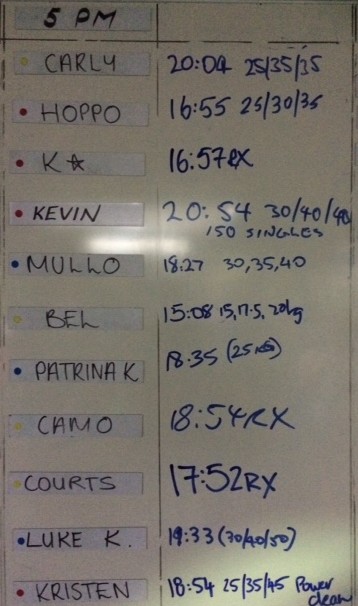 5 PM
CARLY 20:04 25/35/35
HOPPO 16:55 25/30/35
K☆ 16:57RX
KEVIN 20:54 30/40/40
150 SINGLES
MULLO 18:27 30,35,40
BEL 15:08 15,17.5,20kg
PATRINA K 18:35 (25KG)
CAMO 18:54RX
COURTS 17:52RX
LUKE K. 19:33 (30/40/50)
KRISTEN 18:54 25/35/45 Power
clean